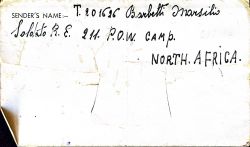 SENDER'S NAME:- T. 201626 Barbetti Marsilio
Soldato R. E. 211. P.O.W. CAMP.
NORTH. AFRICA.